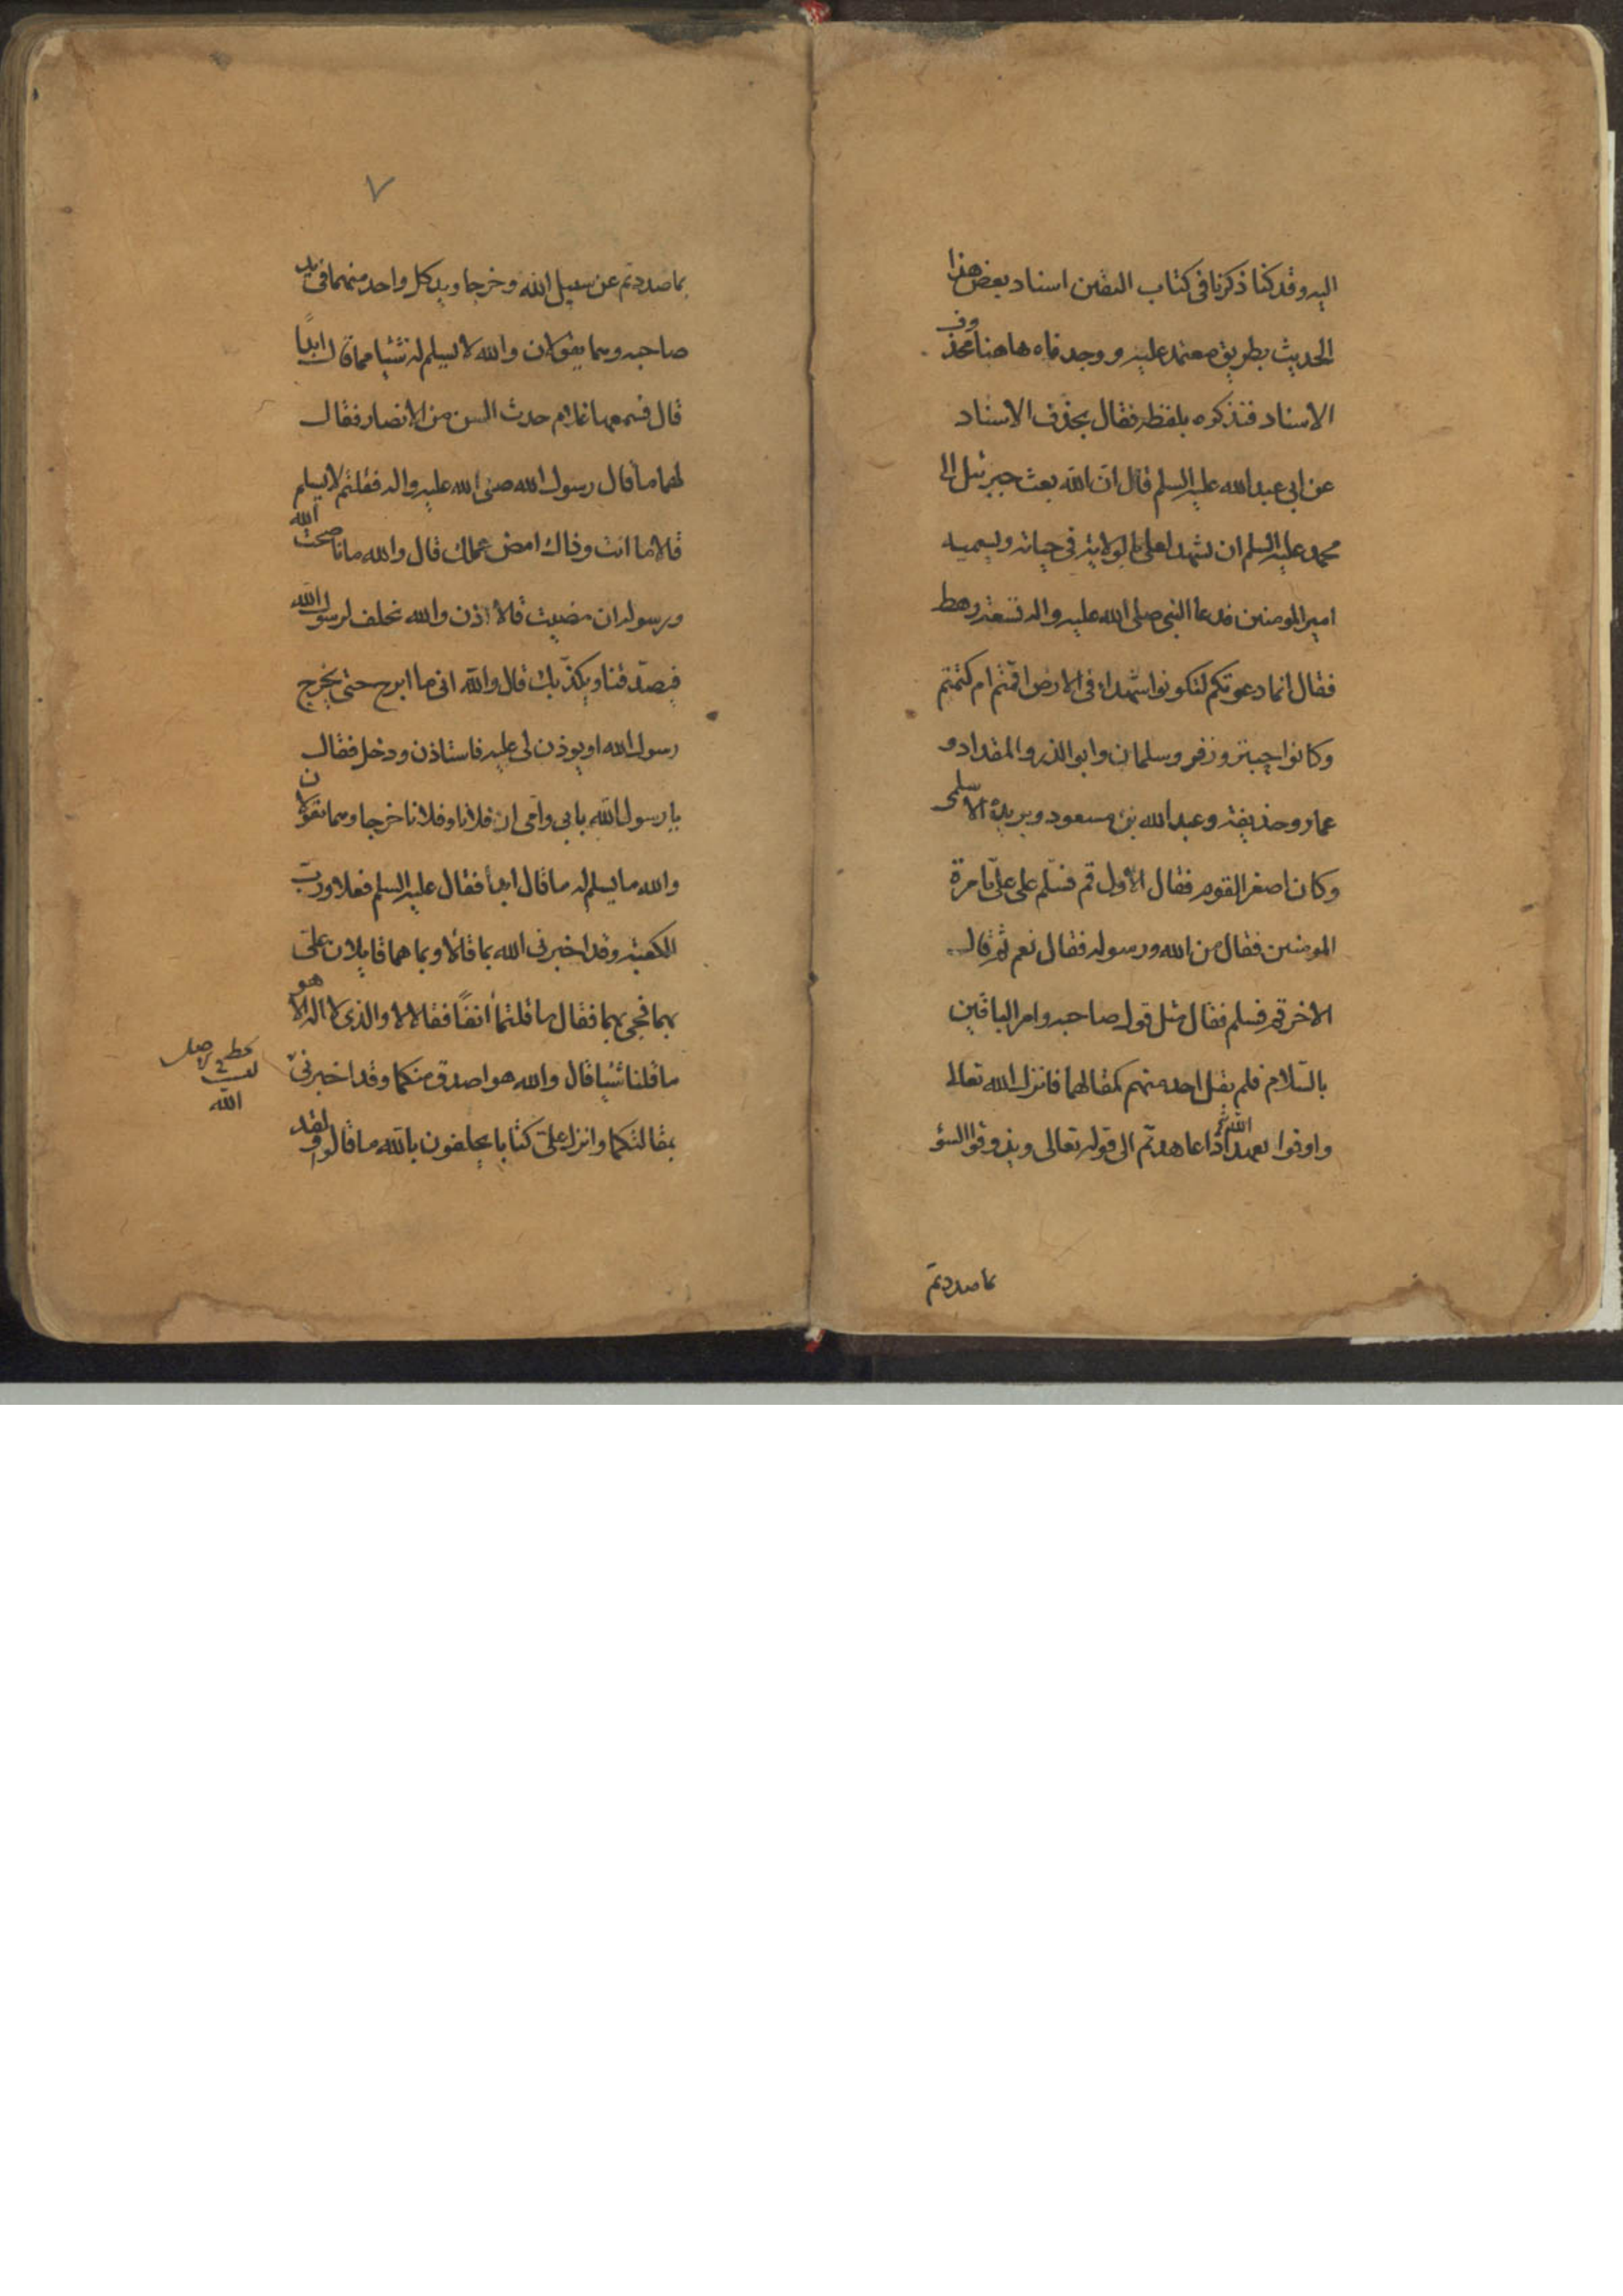 اليه وقد كنا ذكرنا في كتاب اليقين اسناد بعض هذا
الحديث بطريق معتمد عليه ووجدناه هاهنا محذوف
الاسناد فنذكره بلفظه فقال بحذف الاسناد
عن ابي عبد الله عليه السلم قال ان الله بعث جبرئيل الى
محمد عليه السلم ان يشهد لعلي بالولاية في حياته ويسميه
امير المومنين فدعا النبي صلى الله عليه واله تسعة رهط
فقال انما دعوتكم لتكونوا شهداء في الارض اقمتم ام كتمتم
وكانوا حبتر وزفر وسلمان وابو الذر والمقداد و
عمار وحذيفة وعبد الله بن مسعود وبريدة الاسلمي
وكان اصغر القوم فقال الأول قم فسلم على علي بامرة
المومنين فقال من الله ورسوله فقال نعم ثم قال
الاخر قم فسلم فقال مثل قول صاحبه وامر الباقين
بالسلام فلم يقل احد منهم كمقالهما فانزل الله تعالى
واوفوا بعهد الله اذا عاهدتم الى قوله تعالى ويذوقوا السؤ
بما صددتم
٧
بما صددتم عن سبيل الله وخرجا ويد كل واحد منهما في يد
صاحبه وهما يقولان والله لا يسلم له شيئا مما قال ابدًا
قال فسمعهما غلام حدث السن من الانصار فقال
لهما ما قال رسول الله صلى الله عليه واله فقلتم لا يسلم
قالا ما انت وذاك امض عملك قال والله ما ناصحت الله
ورسوله ان مضيت قالا اذن والله نحلف لرسول الله
فيصدقنا ويكذّبك قال والله اني ما ابرح حتى يخرج
رسول الله او يوذن لي عليه فاستاذن ودخل فقال
يا رسول الله بابي وامي ان فلانا وفلانا خرجا وهما يقولان
والله ما يسلم له ما قال ابدا فقال عليه السلم فعلا ورب
الكعبة وقد اخبرني الله بما قالا وبما هما قايلان علي
بهما فجيء بهما فقال ما قلتما انفًا فقالا لا والذي لا اله الا هو
ما قلنا شيئا قال والله هو اصدق منكما وقد اخبرني
الله
بمقالتكما وانزل علي كتابا يحلفون بالله ما قالوا ولقد